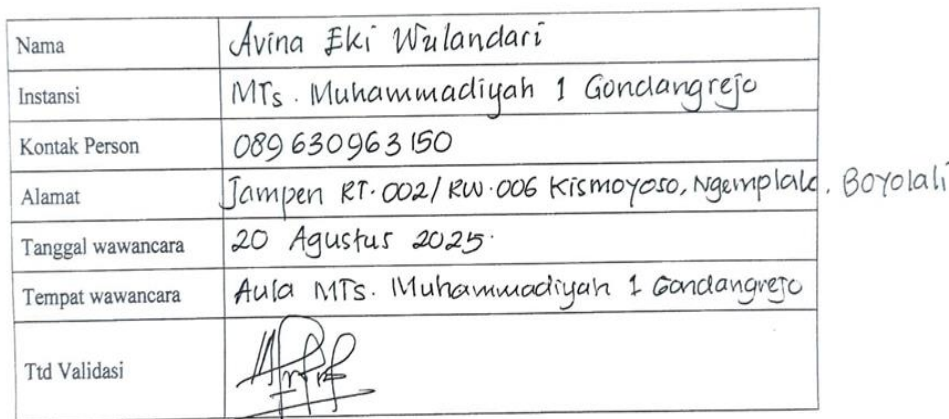 Nama Avina Eki Wulandari
Instansi MTs. Muhammadiyah 1 Gondangrejo
Kontak Person 089 630963150
Alamat Jampen RT.002/RW.006 Kismoyoso, Ngemplak, Boyolali
Tanggal wawancara 20 Agustus 2025.
Tempat wawancara Aula MTs. Muhammadiyah 1 Gondangrejo
Ttd Validasi